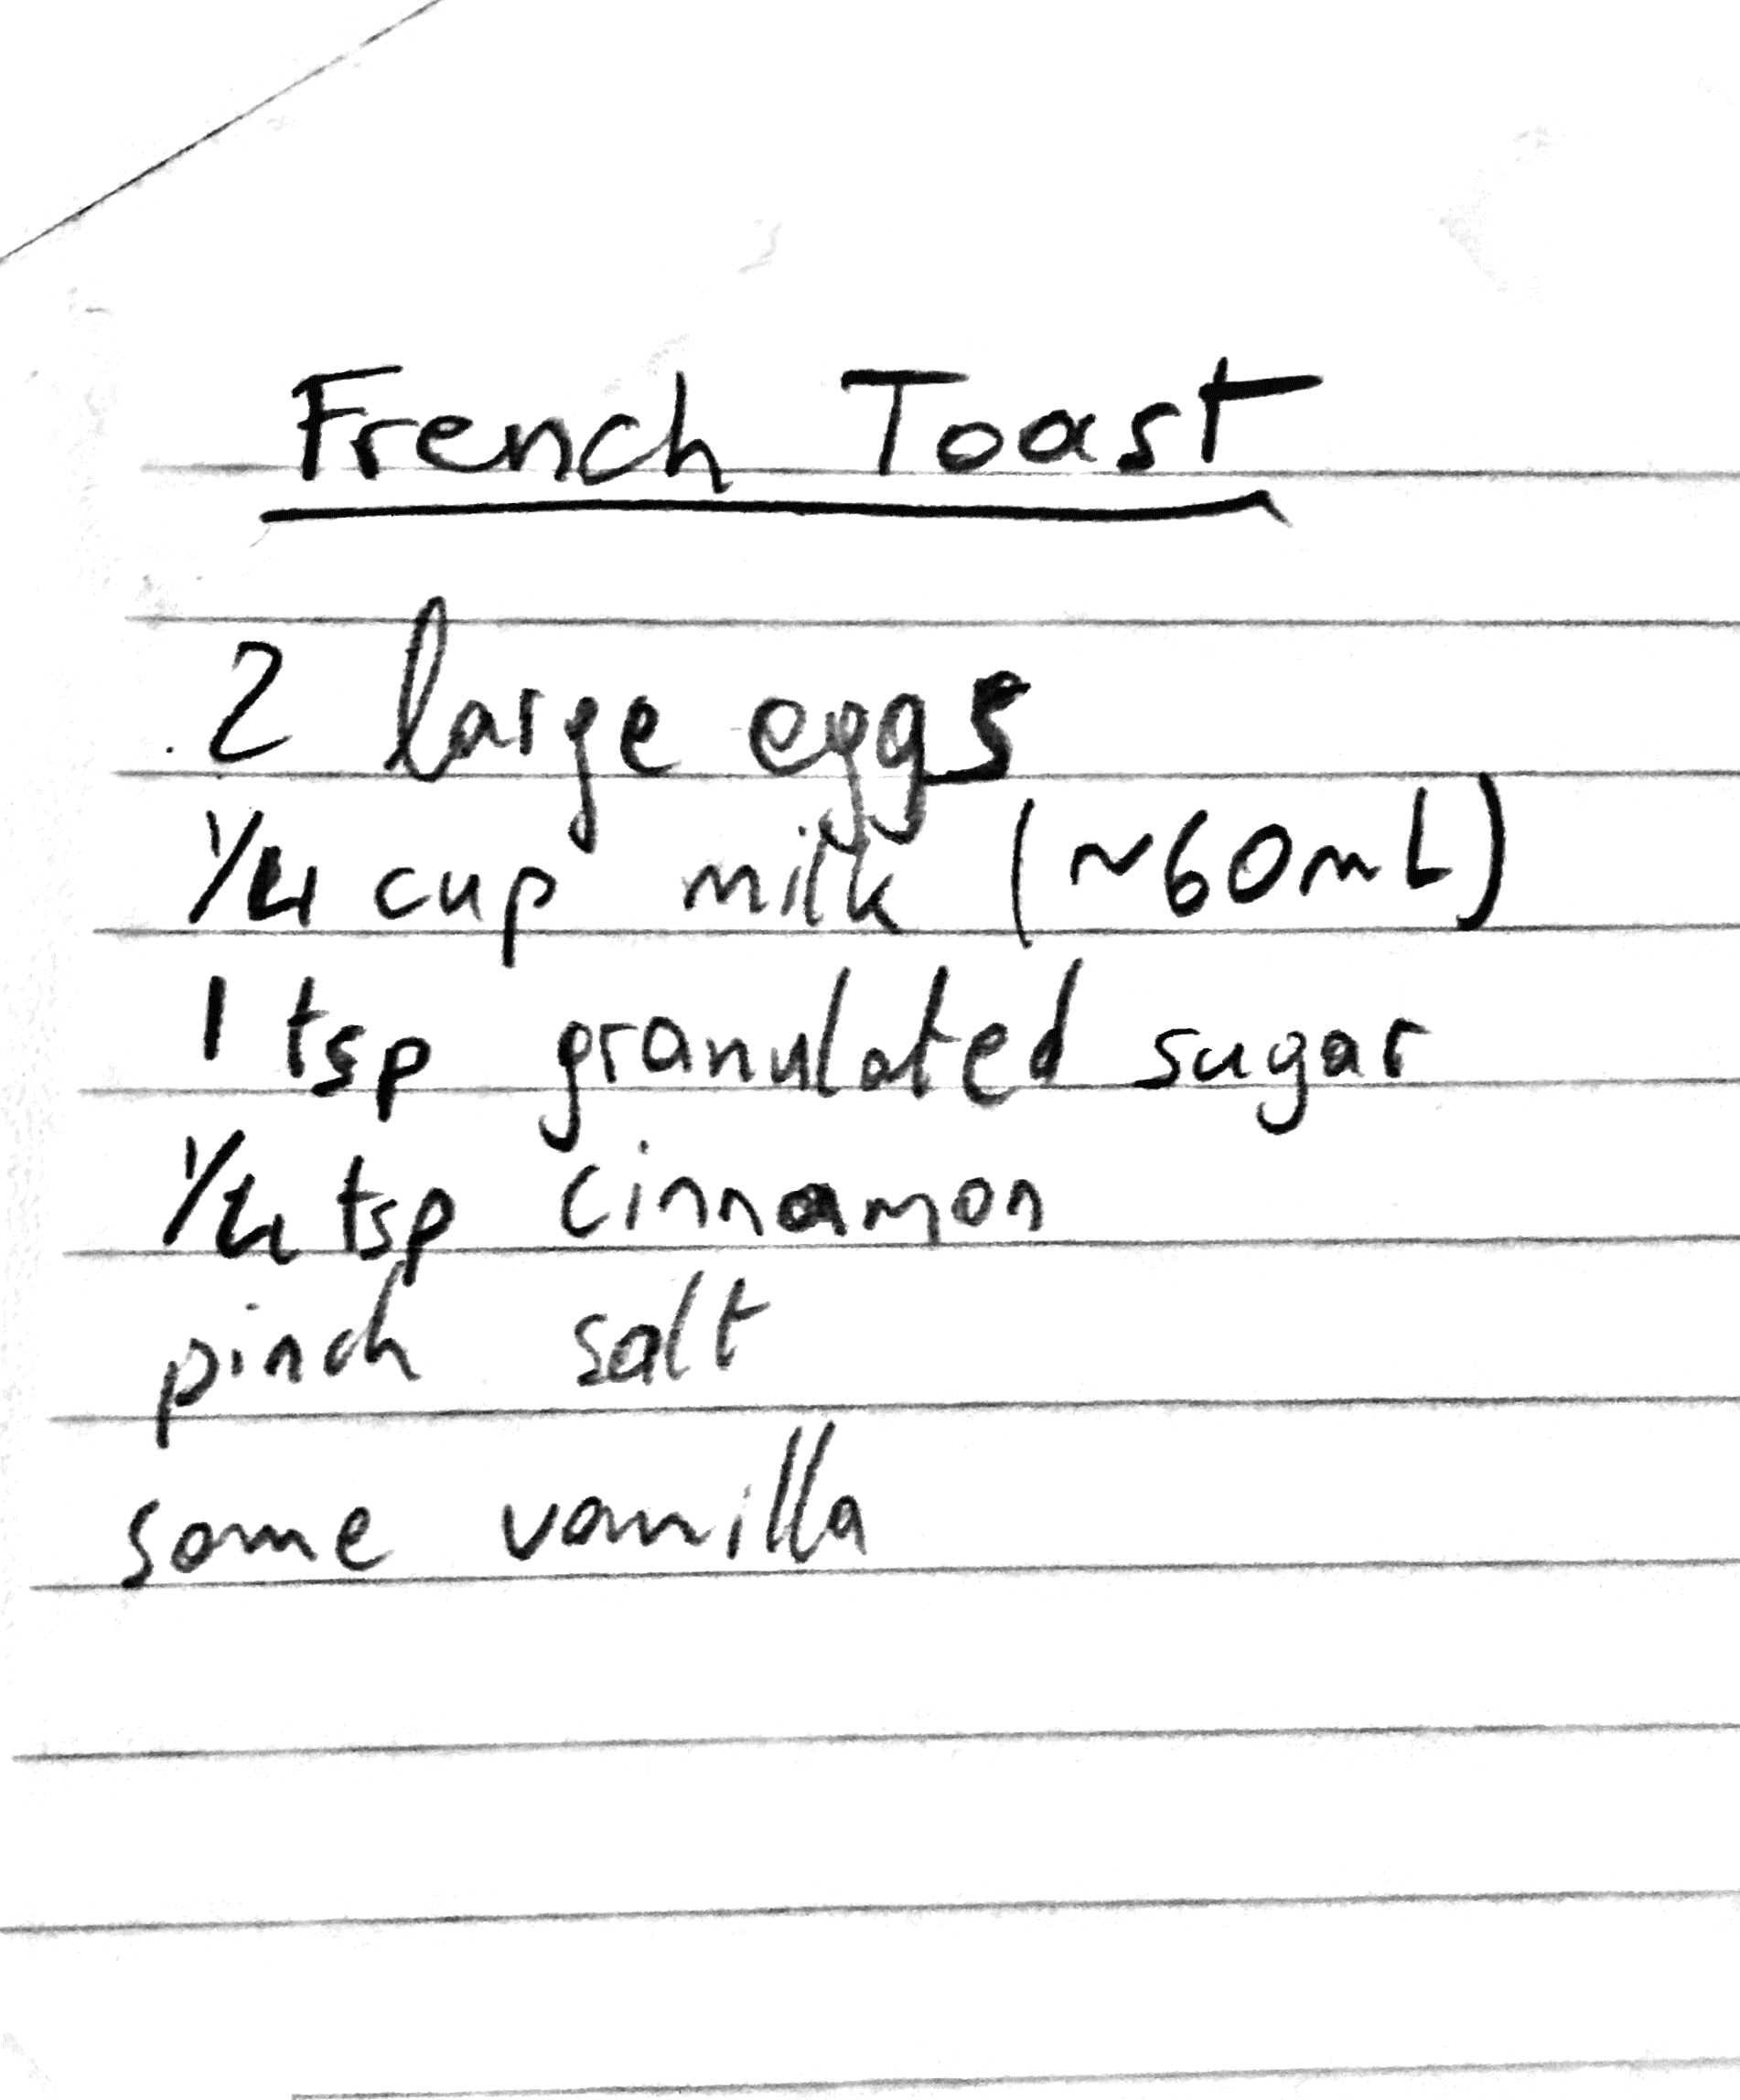 French Toast
2 large eggs
1/4 cup milk (~60mL)
1 tsp granulated sugar
1/4 tsp cinnamon
pinch salt
some vanilla